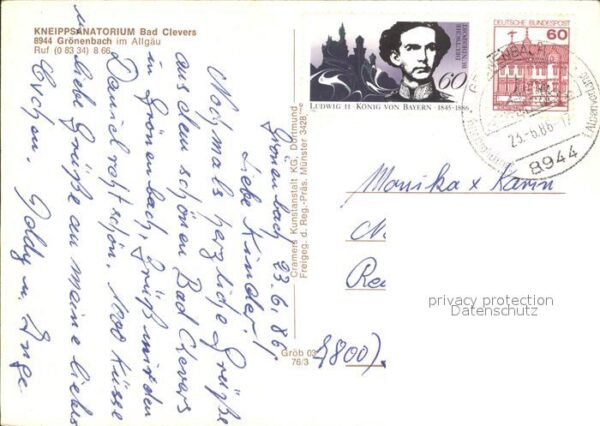 KNEIPPSANATORIUM Bad Clevers
8944 Grönenbach im Allgäu
Ruf (0 83 34) 8 66
Grönenbach 23.6.86
Liebe Kinder!
Nochmals herzliche Grüße
aus dem schönen Bad Clevers
in Grönenbach, Grüßt mir den
Daniel recht schön, 1000 Küsse
u. liebe Grüße an meine liebste
Evchen
Goldy u. Inge
Cramers Kunstanstalt KG, Dortmund
Freigeg. d. Reg.-Präs. Münster 3428
Gröb 03
76/3
DEUTSCHE BUNDESPOST
60
LUDWIG II · KÖNIG VON BAYERN · 1845-1886
DEUTSCHE BUNDESPOST
60
23.-6.86
8944
Monika x Karin
M
Re
7800
privacy protection
Datenschutz